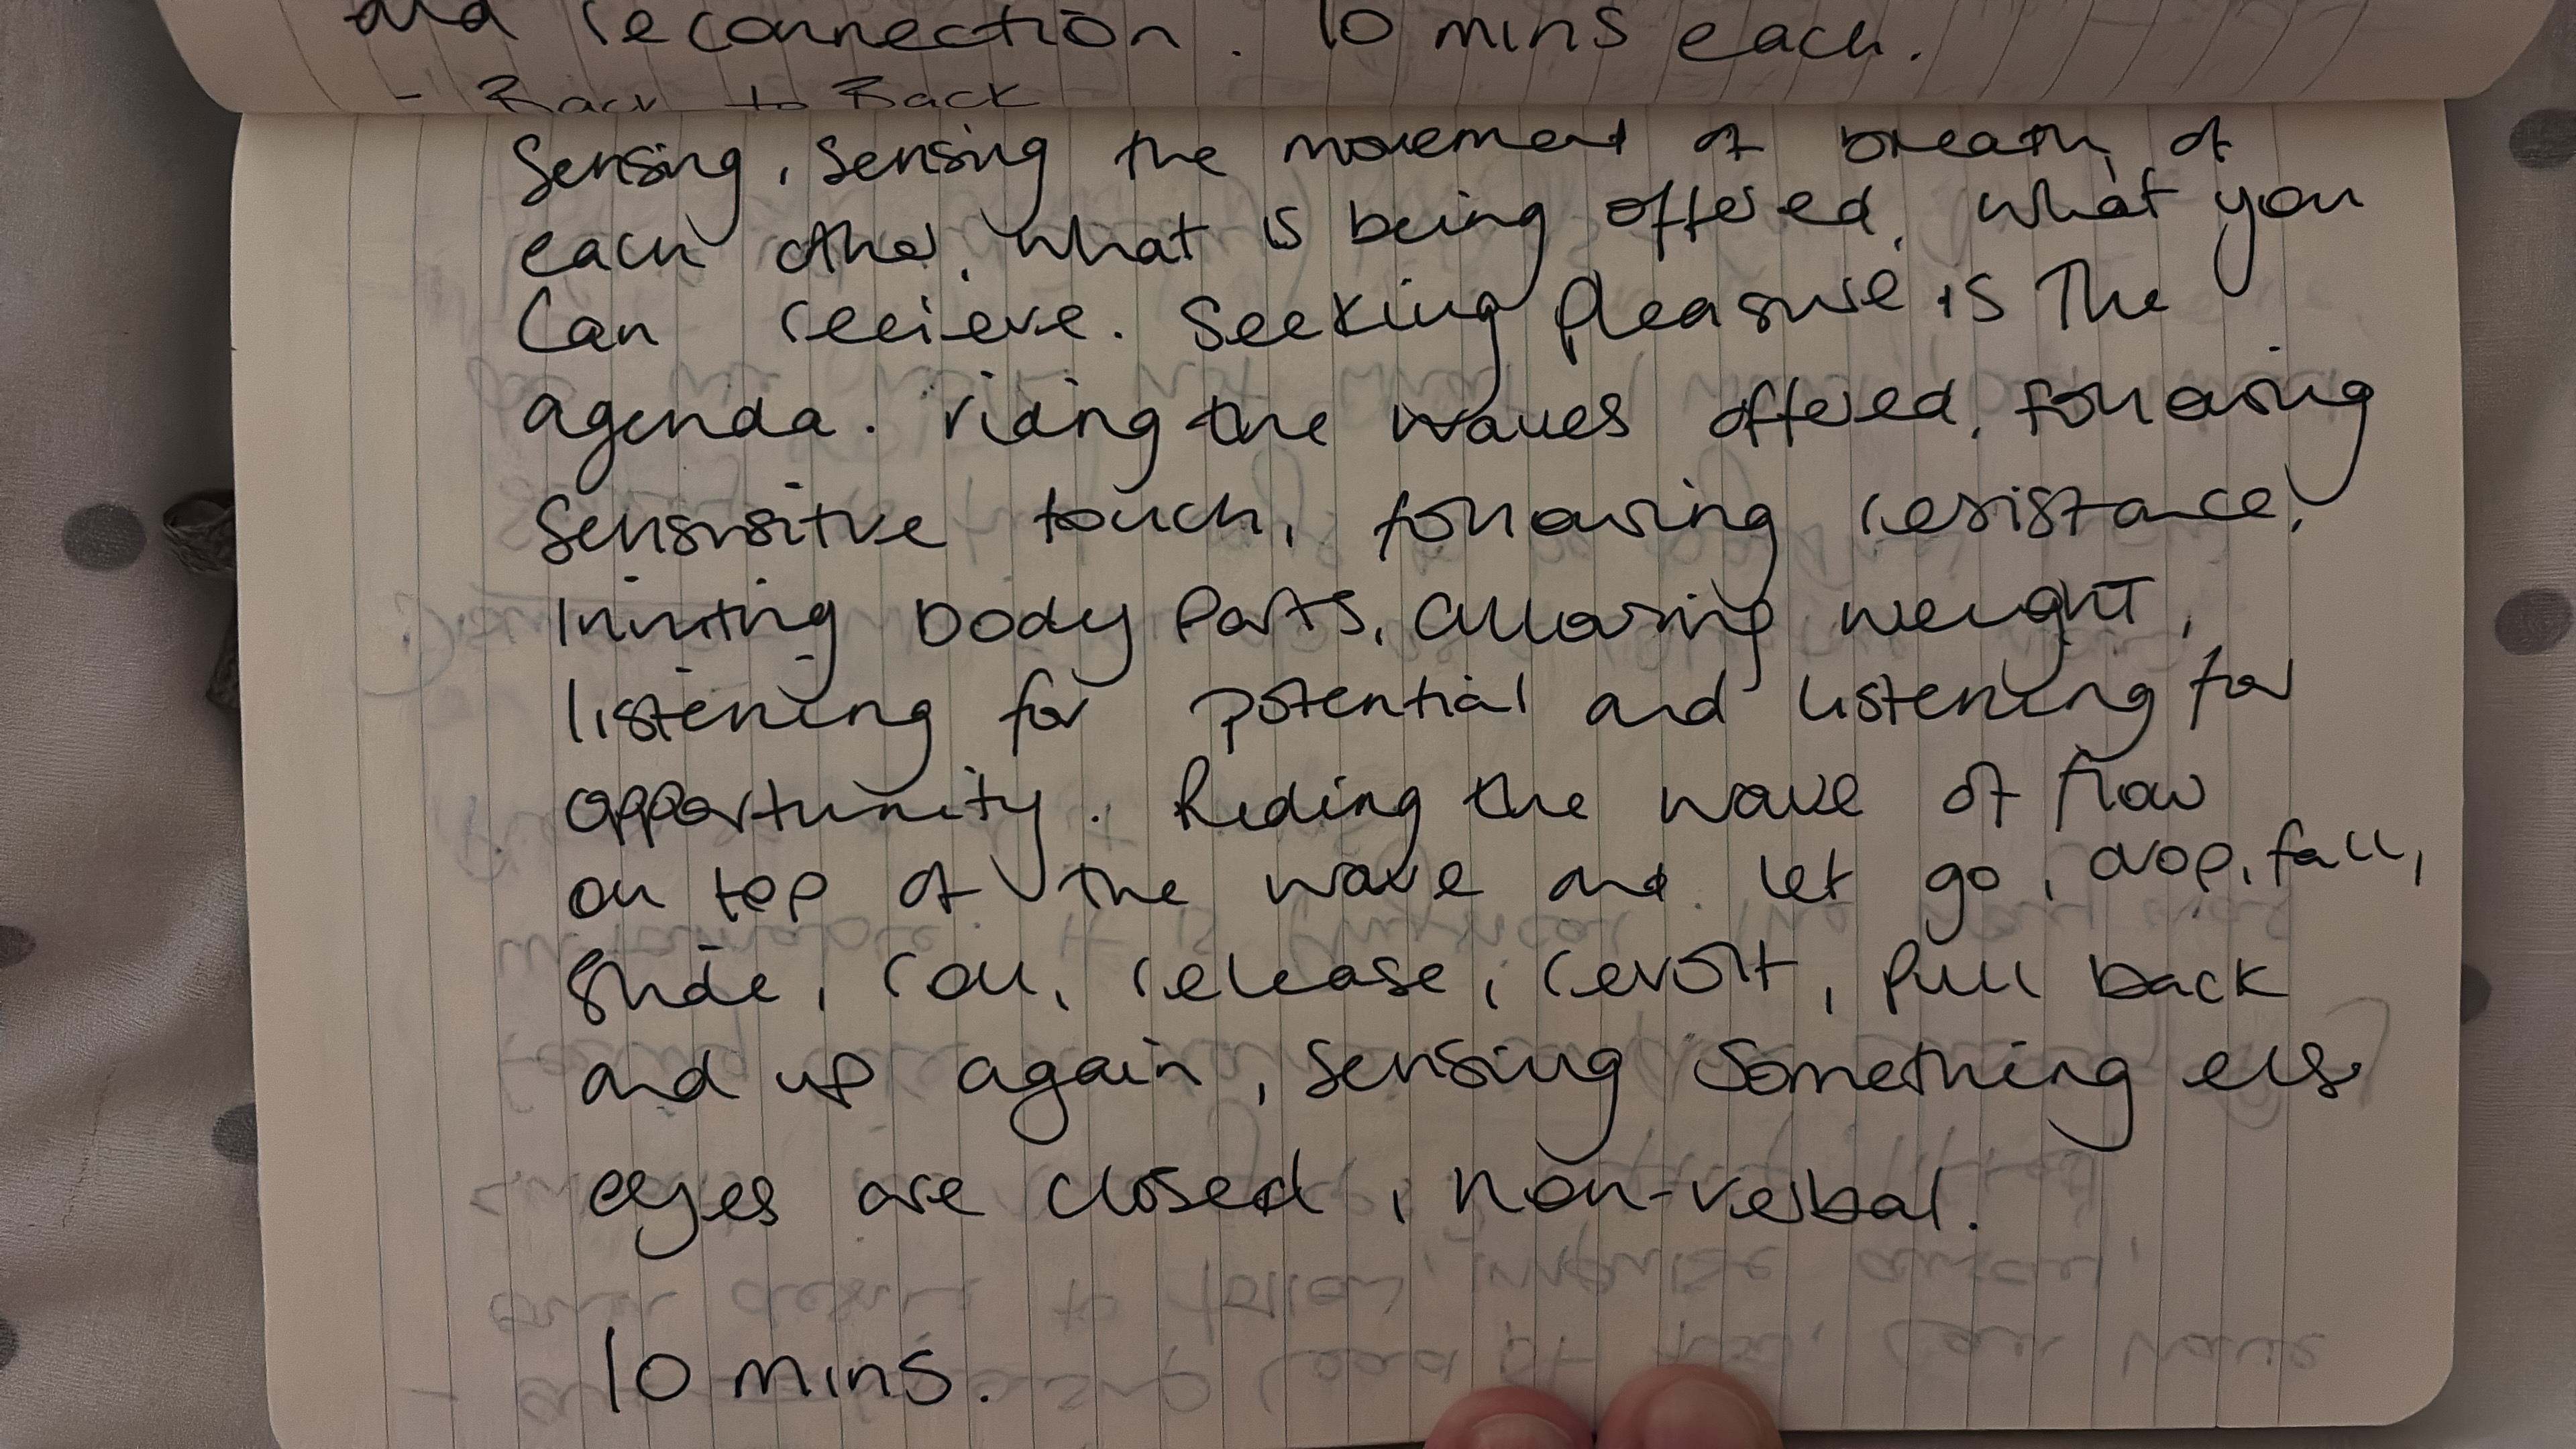 and reconnection. 10 mins each.
- Back to Back
Sensing, sensing the movement of breath, of
each other, what is being offered, what you
can recieve. Seeking pleasure is the
agenda. riding the waves offered, following
Sensisitive touch, following resistance,
Inviting body parts, allowing weight,
listening for potential and listening for
opportunity. Riding the wave of flow
on top of the wave and let go, drop, fall,
slide, roll, release, revolt, pull back
and up again, sensing something els
eyes are closed, non-verbal.
10 mins.